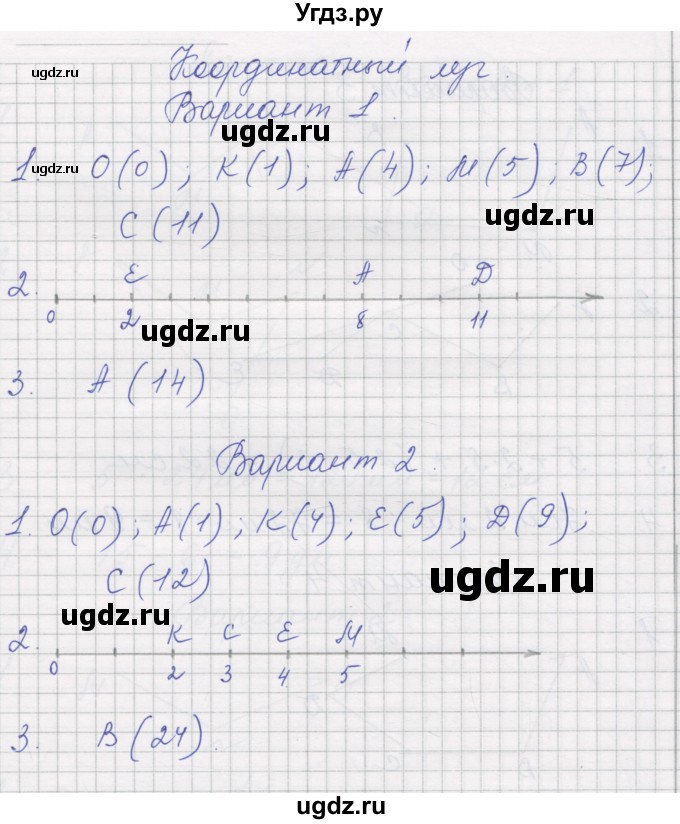 Угдз.ру
ugdz.ru
Координатный луч.
Вариант 1.
ugdz.ru
1. O(0); K(1); A(4); M(5); B(7);
ugdz.ru
C(11)
ugdz.ru
E A D
2.
0 2 8 11
ugdz.ru
3. A(14)
Вариант 2.
1. O(0); A(1); K(4); E(5); D(9);
C(12)
ugdz.ru
ugdz.ru
K C E M
2.
0 2 3 4 5
ugdz.ru
3. B(24).
ugdz.ru
ugdz.ru